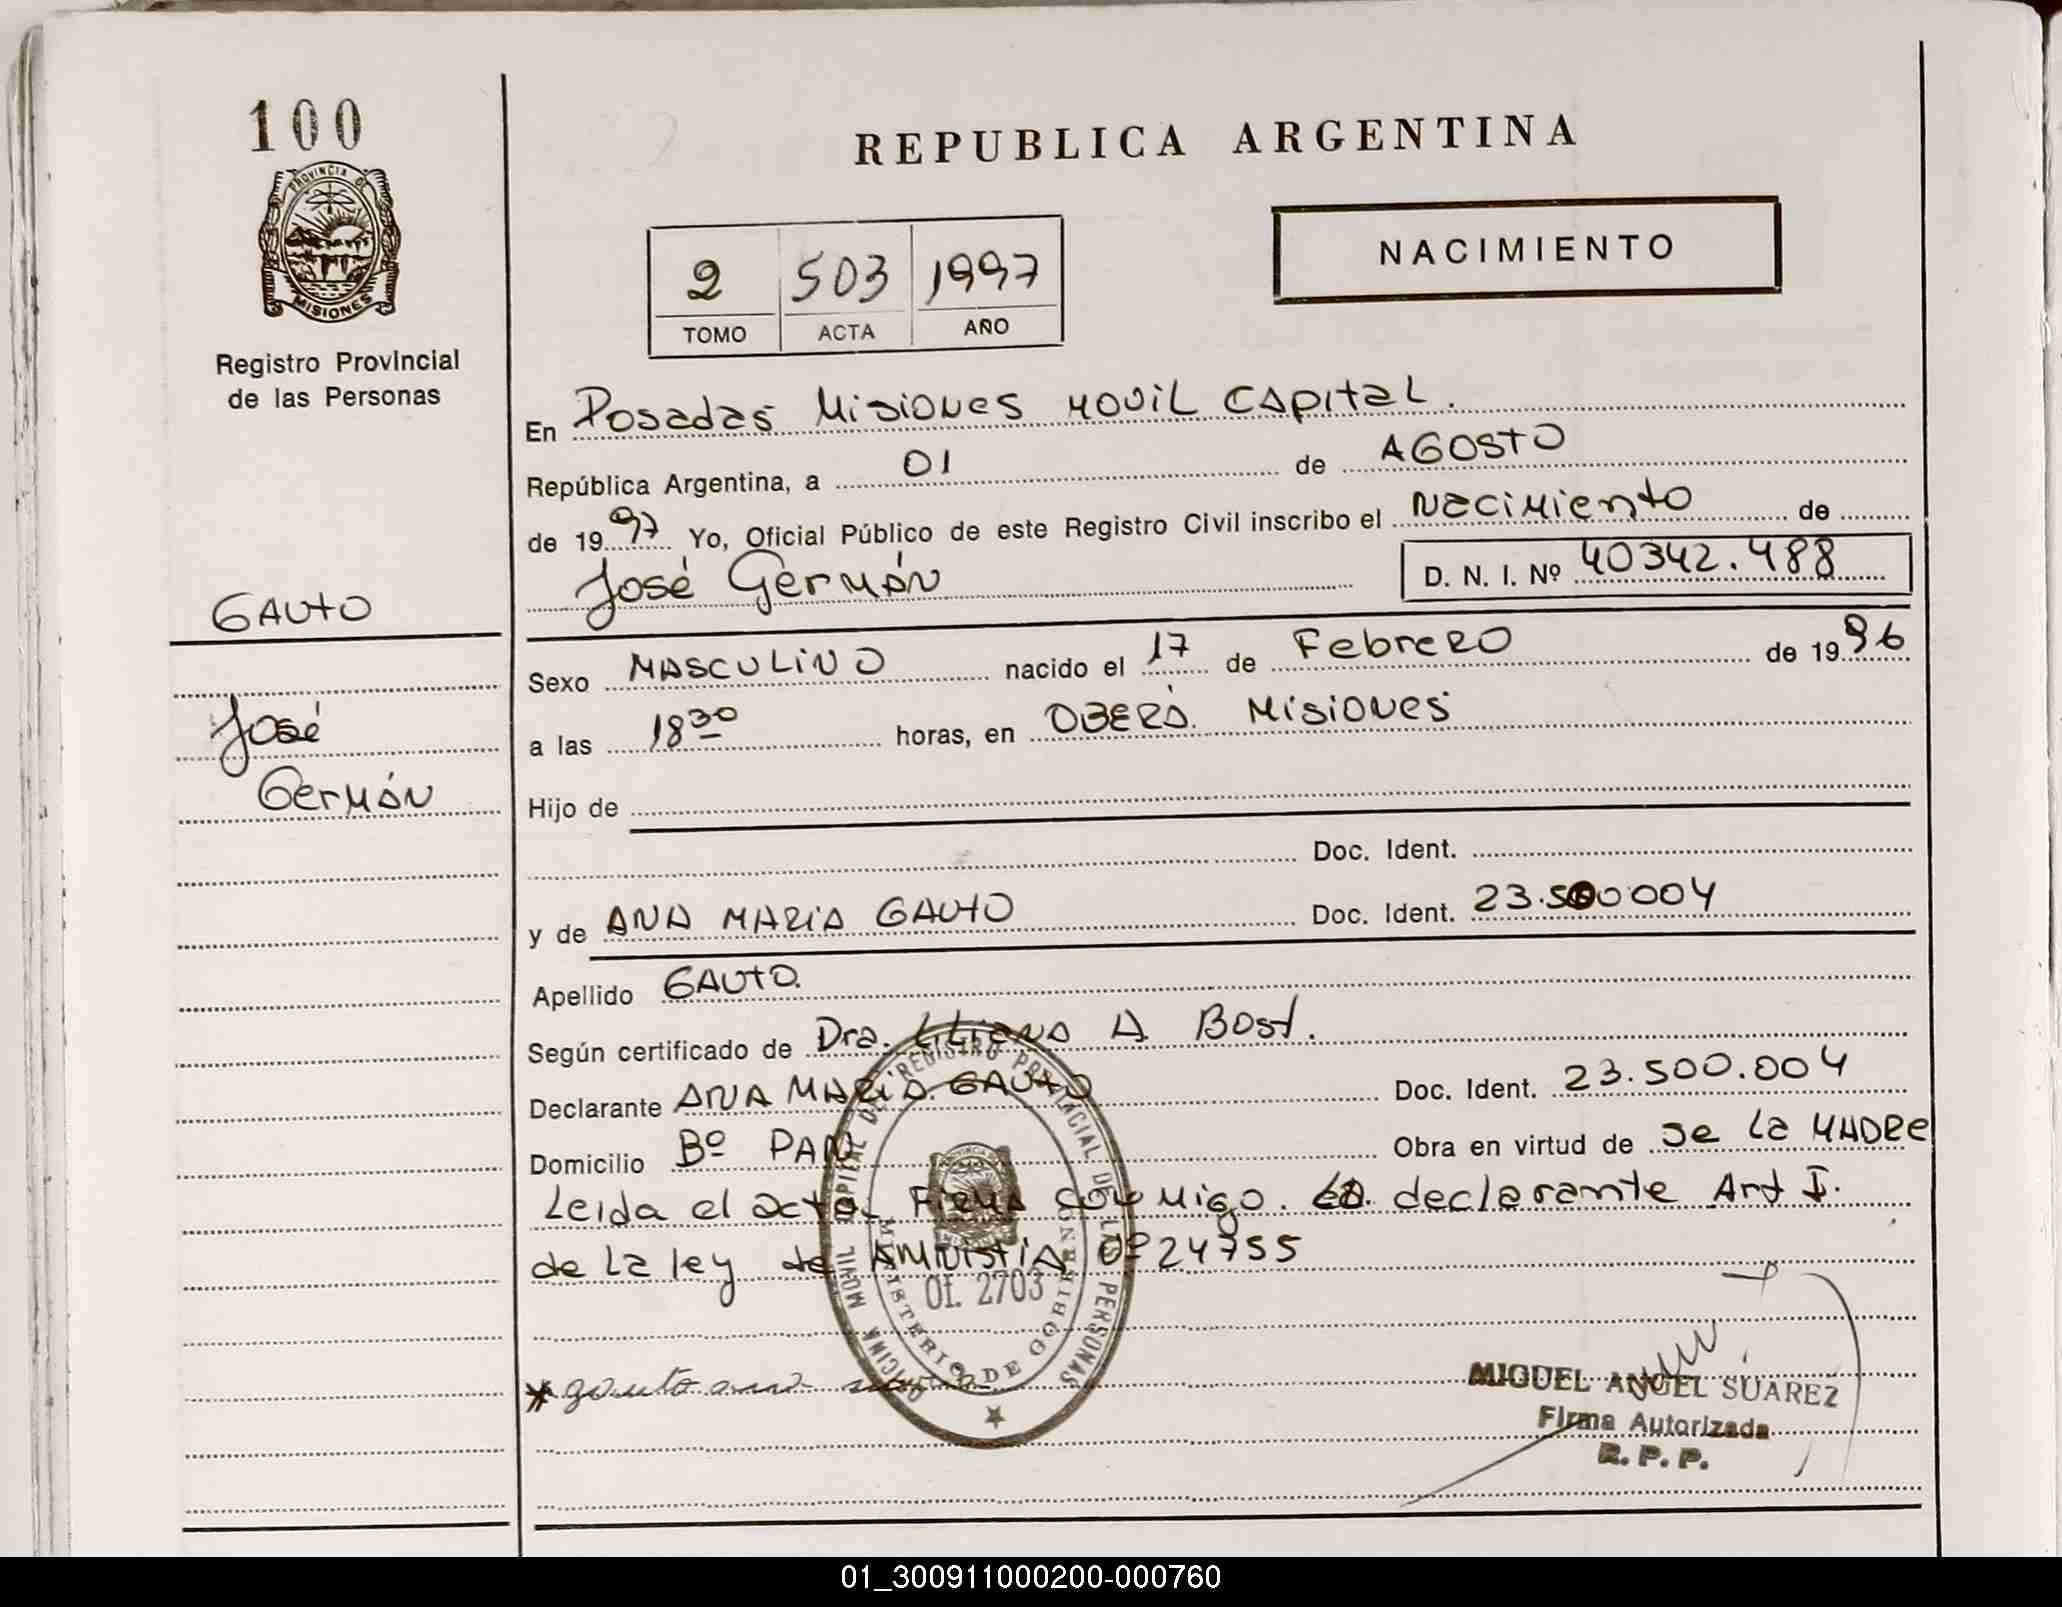 100
PROVINCIA DE
MISIONES
Registro Provincial
de las Personas
GAUTO
José
Germán
REPUBLICA ARGENTINA
NACIMIENTO
2 503 1997
TOMO ACTA AÑO
En Posadas Misiones Movil Capital.
República Argentina, a 01 de AGOSTO
de 1997 Yo, Oficial Público de este Registro Civil inscribo el Nacimiento de
José Germán D. N. I. Nº 40342.488
Sexo MASCULINO nacido el 17 de Febrero de 1996
a las 18 30 horas, en OBERÁ. Misiones
Hijo de
Doc. Ident.
y de ANA MARIA GAUTO Doc. Ident. 23.500004
Apellido GAUTO.
Según certificado de Dra. Liliana A Bost.
Declarante ANA MARIA GAUTO Doc. Ident. 23.500.004
Domicilio Bº PAN Obra en virtud de Se La MADRE
Leida el acta Firma conmigo. La declarante Art I.
de La ley de AMNISTIA Nº 24755
OFICINA MOVIL CAPITAL DEL REGISTRO PROVINCIAL DE LAS PERSONAS
MINISTERIO DE GOBIERNO
Of. 2703
gauto ana maria
MIGUEL ANGEL SUAREZ
Firma Autorizada
R. P. P.
01_300911000200-000760